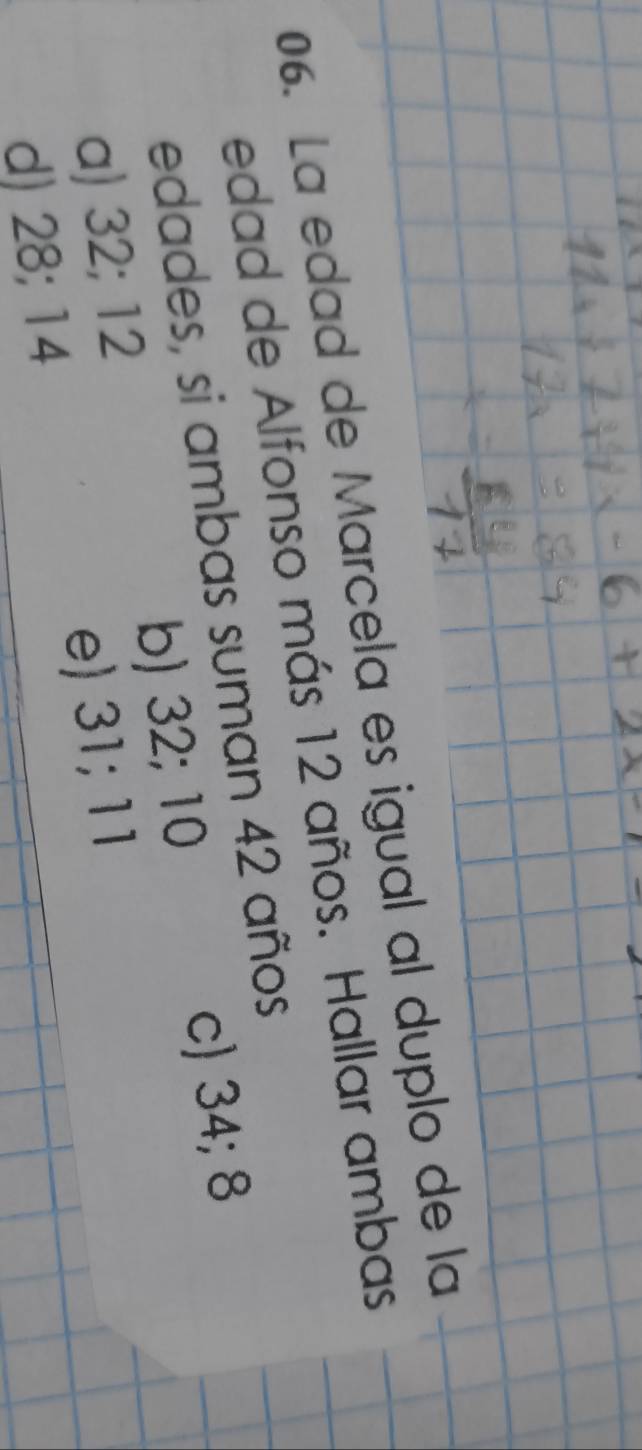 11x + 7 + 4x - 6 + 2x
17x = 84
17
06. La edad de Marcela es igual al duplo de la
edad de Alfonso más 12 años. Hallar ambas
edades, si ambas suman 42 años
a) 32; 12 b) 32; 10 c) 34; 8
d) 28; 14 e) 31; 11